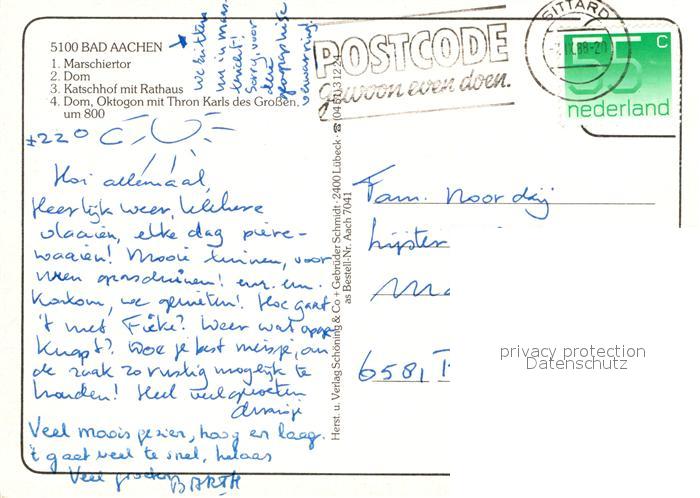 5100 BAD AACHEN
1. Marschiertor
2. Dom
3. Katschhof mit Rathaus
4. Dom, Oktogon mit Thron Karls des Großen,
um 800
We zitten
nu in maas
tricht!
Sorry voor
deze
geografische
verwarring!
POSTCODE
gewoon even doen.
SITTARD
55 c
nederland
±22°
Hoi allemaal,
Heerlijk weer, lekkere
vlaaien, elke dag piere-
waaien! Mooie tuinen, voor
enz. enz.
Kortom, we genieten! Hoe gaat
't met Fieke? Weer wat opge-
knapt? Doe je best meisje, om
de zaak zo rustig mogelijk te
houden! Heel veel groeten
Veel moois gezien, hoog en laag.
't gaat veel te snel, helaas
Veel groeten BARTH
Herst. u. Verlag Schöning & Co + Gebrüder Schmidt · 2400 Lübeck · ☎ (0451) 31224
as Bestell-Nr. Aach 7041
Fam. Noordij
Lijster
6581
privacy protection
Datenschutz